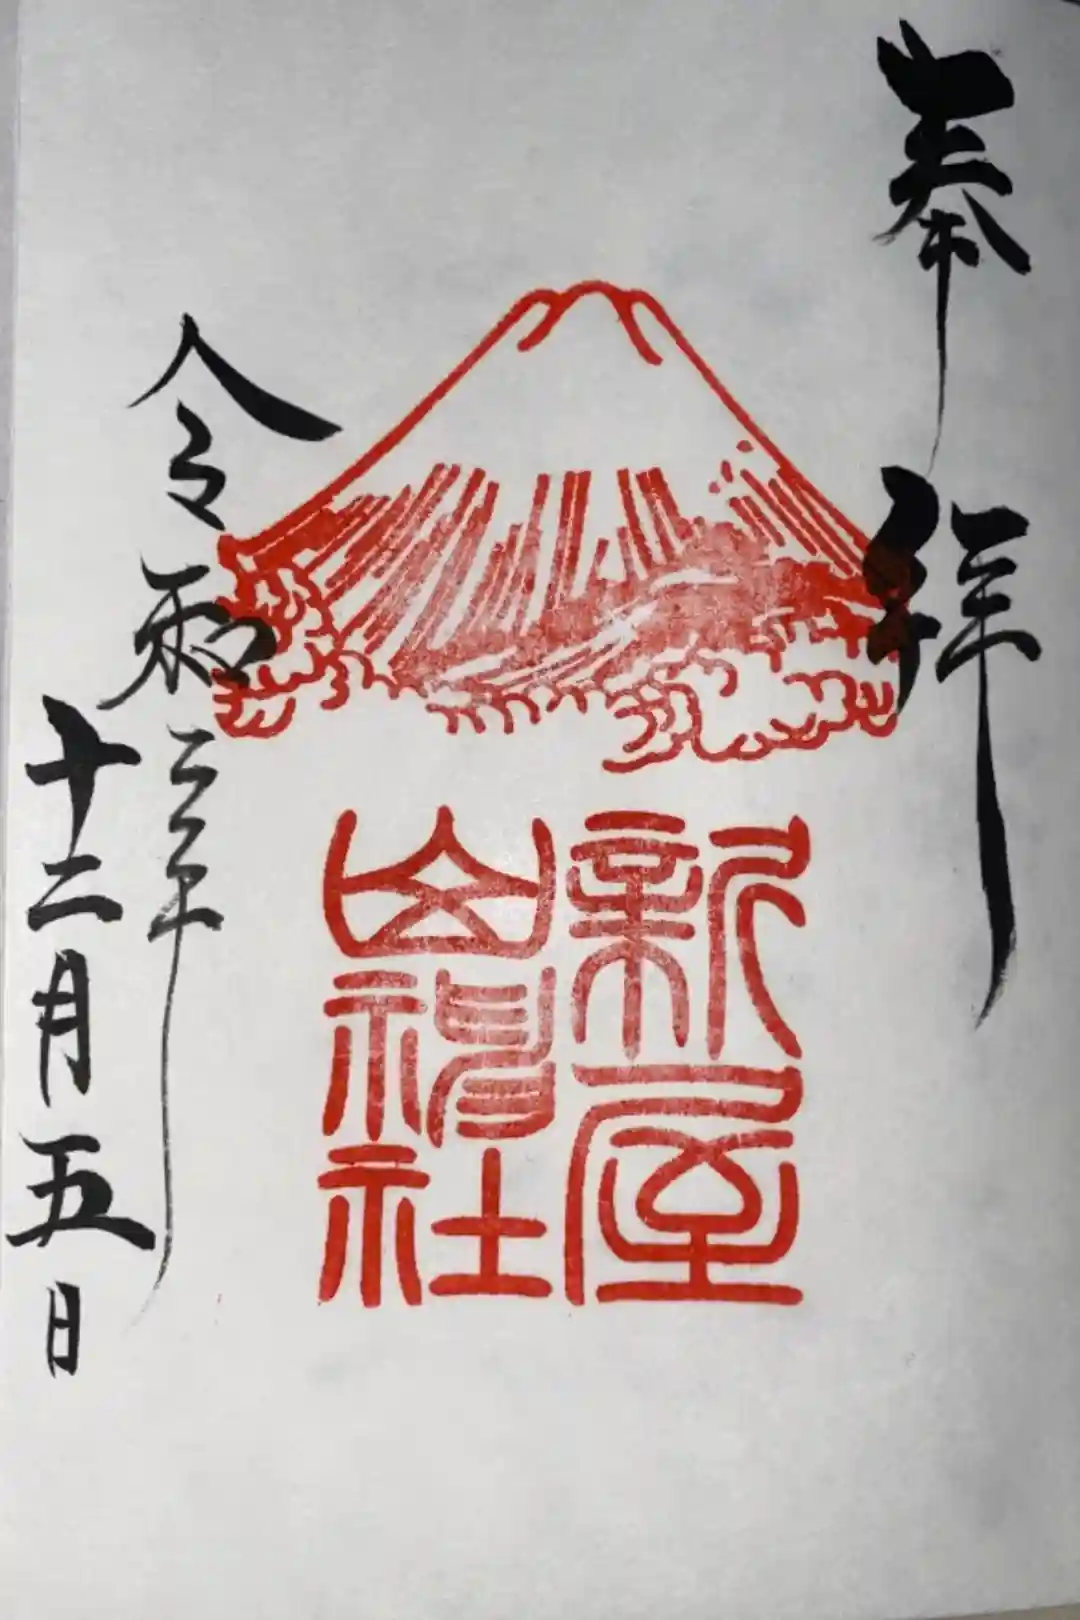 奉拝
新屋
山神社
令和三年
十二月五日